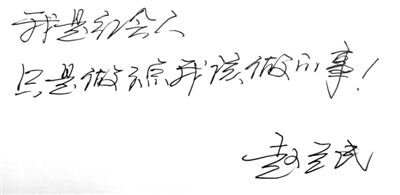 我是社会人
只是做了点我该做的事！
赵